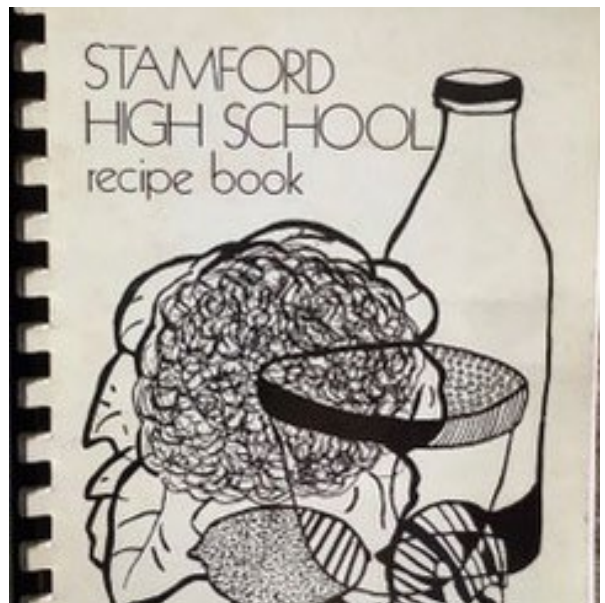 STAMFORD
HIGH SCHOOL
recipe book